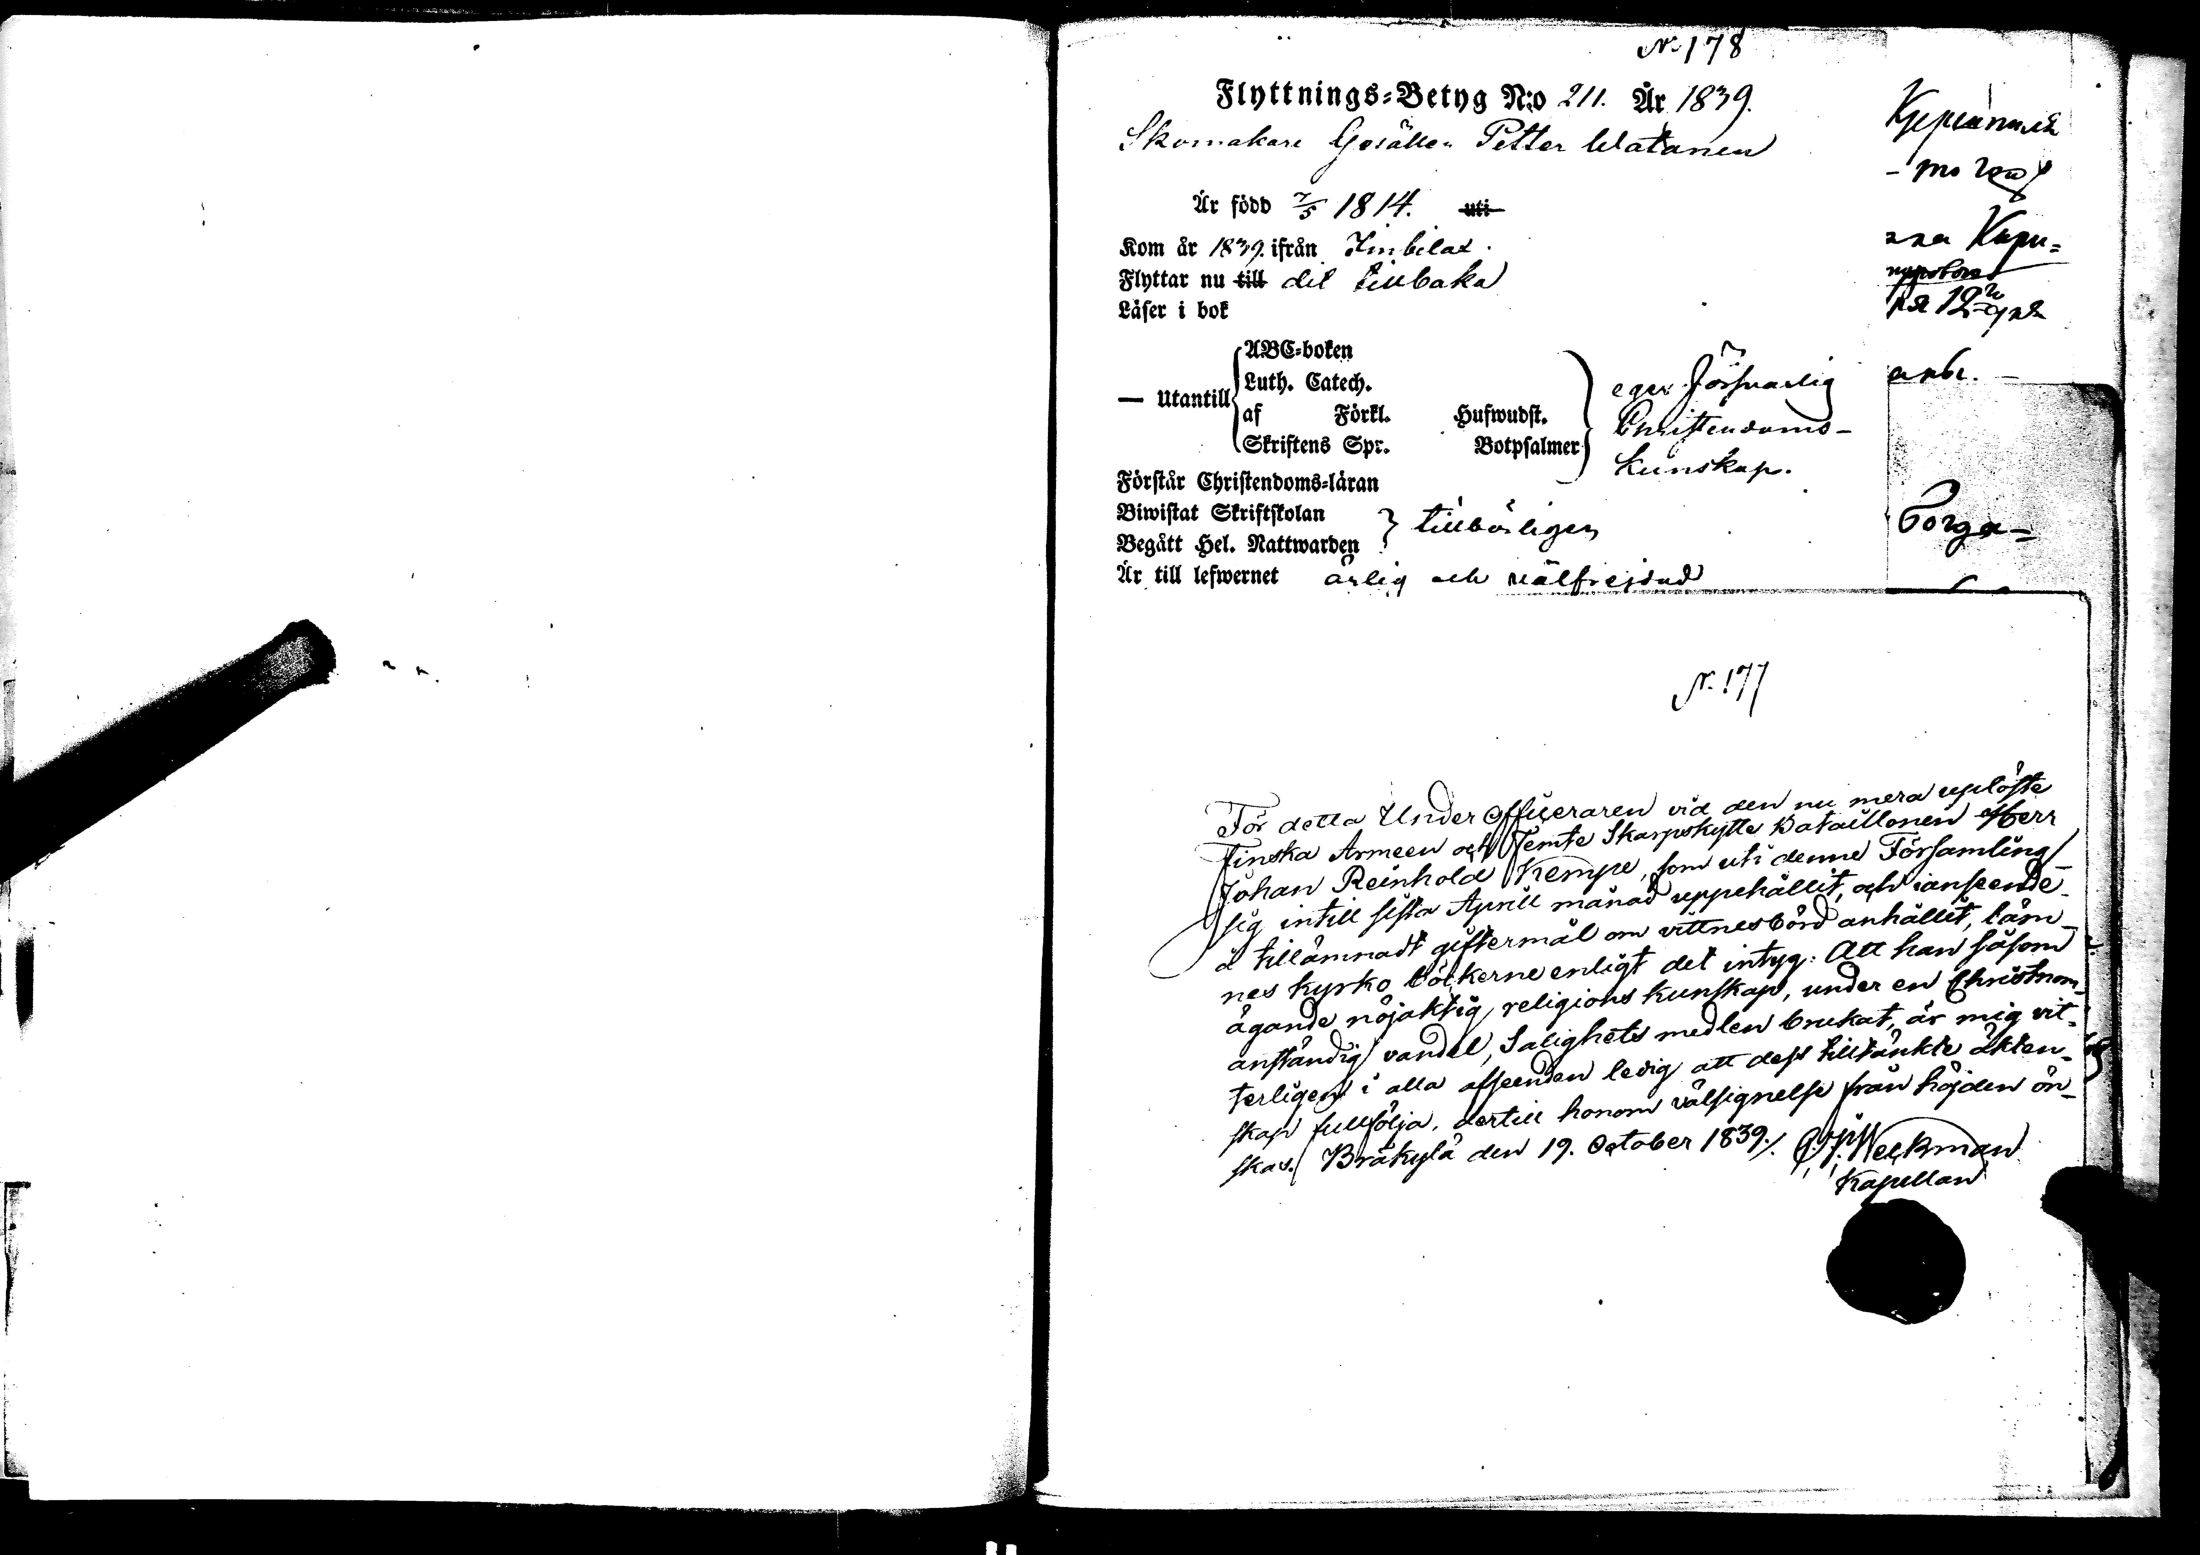 N. 178
Flyttnings-Betyg N:o 211. År 1839.
Skomakare Gesällen Petter Watanen
Är född 7/5 1814. uti
Kom år 1839. ifrån Kimbilax.
Flyttar nu till dit tillbaka
Läser i bok
— Utantill
ABC-boken
Luth. Catech.
af Förkl. Hufwudst.
Skriftens Spr. Botpsalmer
eger försvarlig
Christendoms-
kunskap.
Förstår Christendoms-läran
Biwistat Skriftskolan
Begått Hel. Nattwarden
tillbörligen
Är till lefwernet ärlig och välfrejdad
на 12
Borga-
N. 177
För detta Under Officeraren vid den nu mera uplöste
Finska Armeen och Femte Skarpskytte Bataillonen Herr
Johan Reinhold Kempe, som uti denne Församling
sig intill sista Aprill månad uppehållit, och i anseende
å tillämnadt giftermål om vittnesbörd anhållit, läm-
nes kyrko böckerne enligt det intyg: Att han såsom
ägande nöjaktig religions kunskap, under en Christnom
anständig vandel, Salighets medlen brukat, är mig vit-
terligen i alla afseenden ledig att dess tilltänkte äkten-
skap fullfölja, dertill honom välsignelse från höjden ön-
skas. Bräkylä den 19. October 1839. Weckman
Kapellan